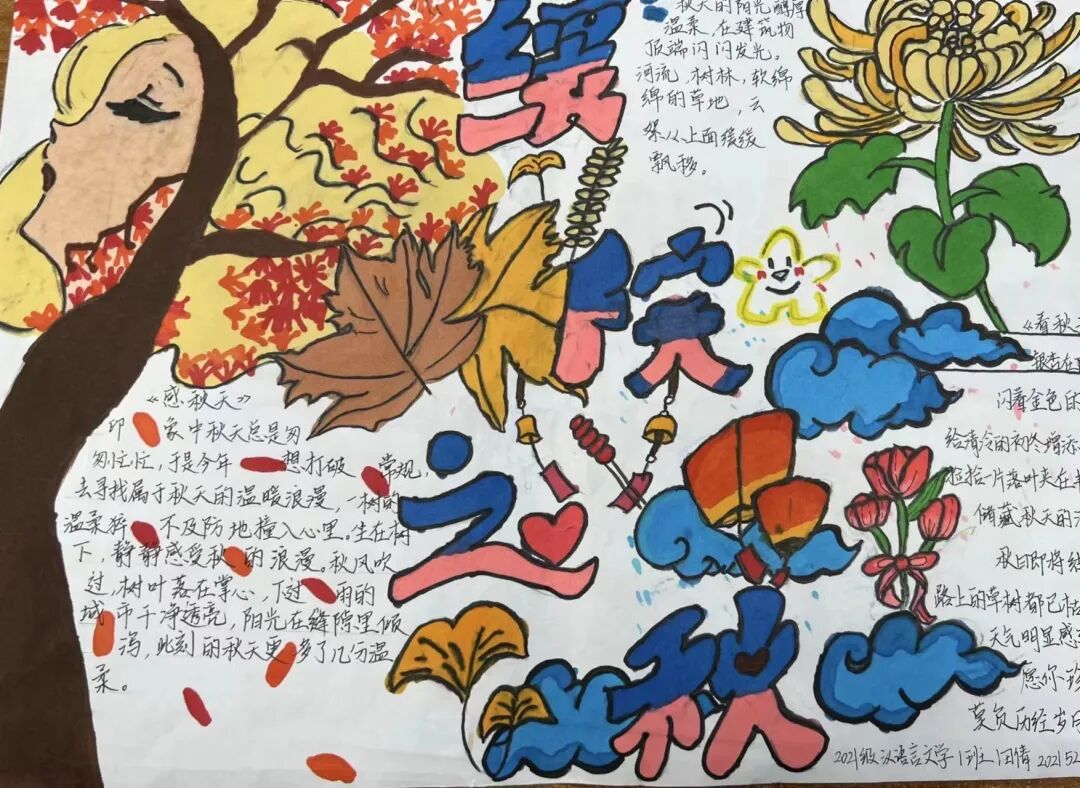 缨
缤
之
秋
秋天的阳光醇厚
温柔,在建筑物
顶端闪闪发光。
河流,树林,软绵
绵的草地,云
朵从上面缓缓
飘移。
《感秋天》
印象中秋天总是匆
匆忙忙,于是今年想打破常规,
去寻找属于秋天的温暖浪漫,一树的
温柔猝不及防地撞入心里。坐在树
下,静静感受秋的浪漫。秋风吹
过,树叶落在掌心,下过雨的
城市干净透亮,阳光在缝隙里倾
泻,此刻的秋天更多了几分温
柔。
《看秋
银杏在
闪着金色的
给清冷的初冬增添
捡拾一片落叶夹在
储藏秋天的
秋日即将结
路上的草树都已枯
天气明显感
愿你珍
莫负历经岁
2021级汉语言文学1班 田倩 202152